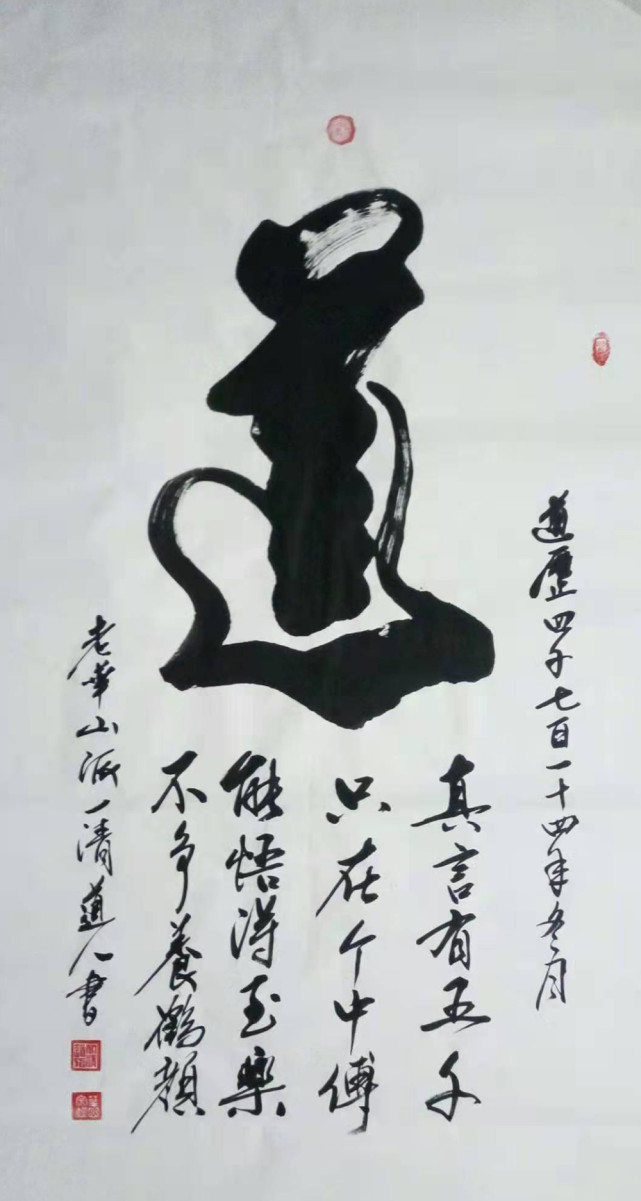 道
道歷四千七百一十四年冬月
真言有五千
只在个中傅
能悟得至樂
不争養鶴顔
老華山派一清道人書